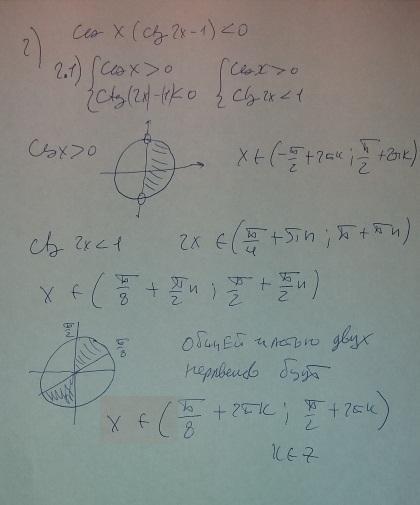 2) cos x (ctg 2x - 1) < 0
2.1) { cos x > 0 { cos x > 0
{ ctg(2x) - 1 < 0 { ctg 2x < 1
cos x > 0 x ∈ (-π/2 + 2πk ; π/2 + 2πk)
ctg 2x < 1 2x ∈ (π/4 + πn ; π + πn)
x ∈ (π/8 + π/2 n ; π/2 + π/2 n)
π/2 π/8
Общей частью двух
неравенств будет
x ∈ (π/8 + 2πk ; π/2 + 2πk)
k ∈ Z